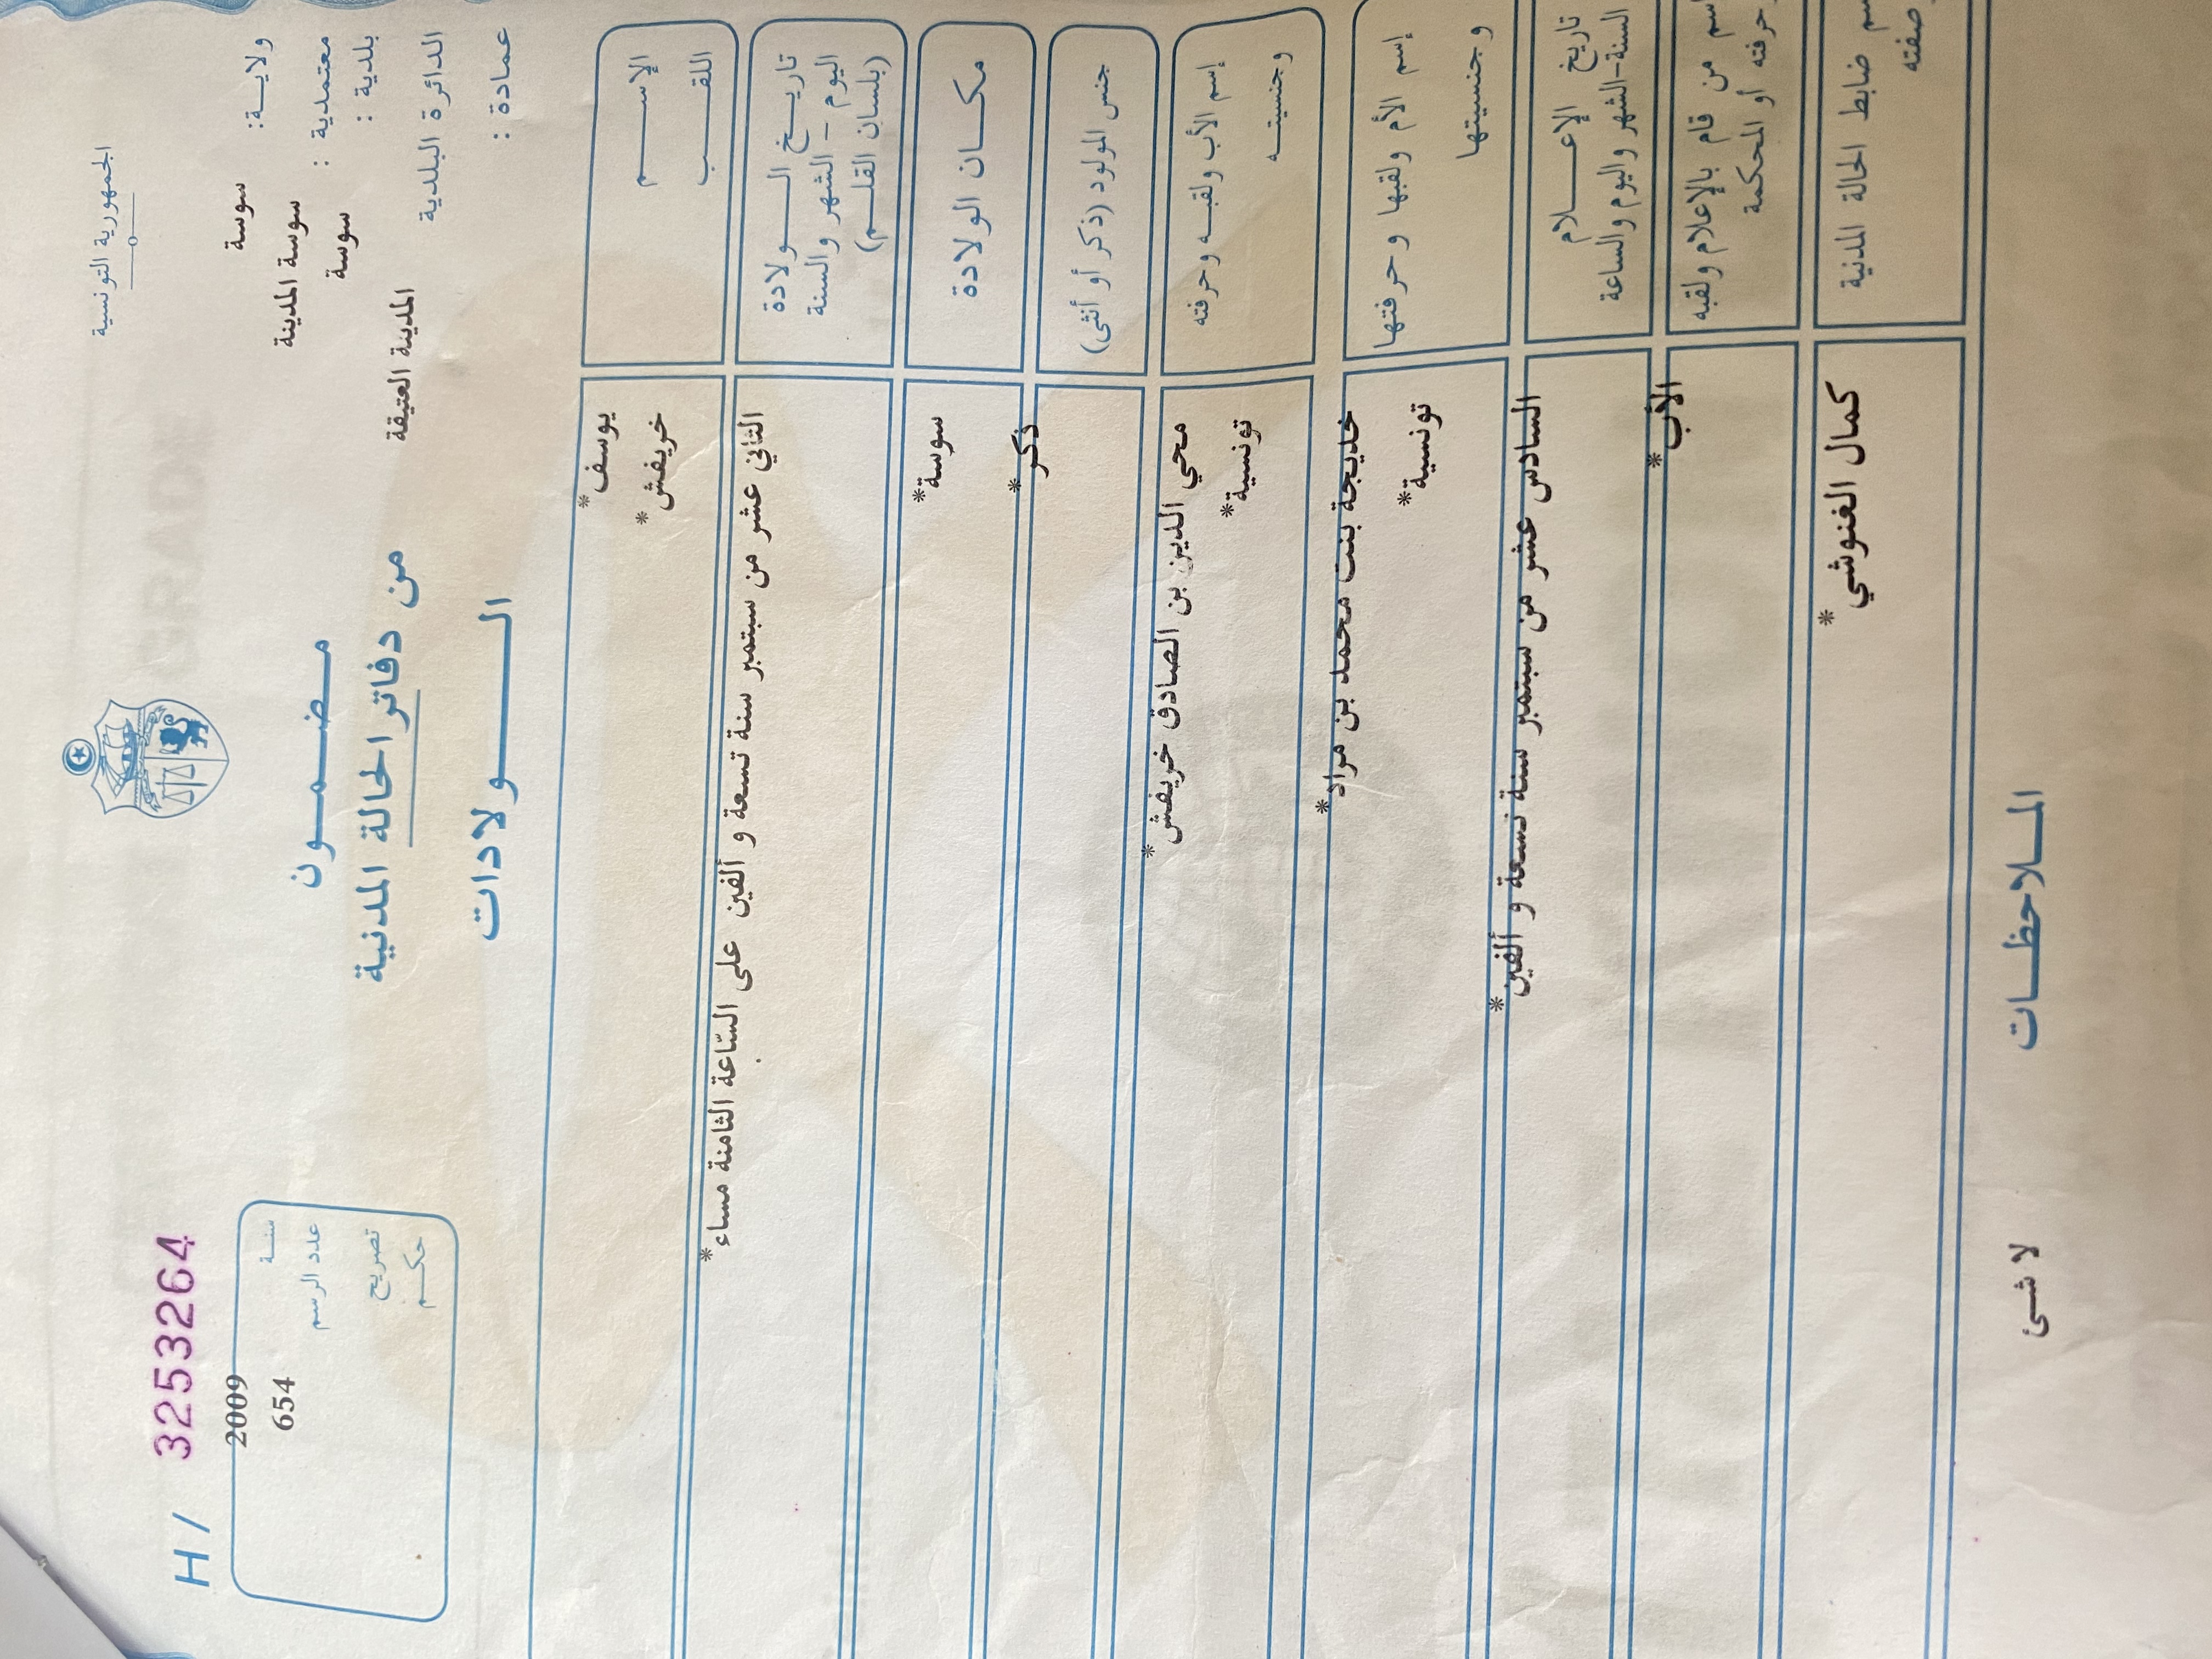 الجمهورية التونسية
ولاية: سوسة
معتمدية : سوسة المدينة
بلدية : سوسة
الدائرة البلدية المدينة العتيقة
عمادة :
H / 3253264
سنة 2009
عدد الرسم 654
تصريح
حكم
مضمون
من دفاتر الحالة المدنية
الولادات
الإسم يوسف*
اللقب خريفش*
تاريخ الولادة
اليوم - الشهر والسنة
(بلسان القلم)
الثاني عشر من سبتمبر سنة تسعة و ألفين على السّاعة الثامنة مساء*
مكان الولادة سوسة*
جنس المولود (ذكر أو أنثى) ذكر*
إسم الأب ولقبه وحرفته محي الدين بن الصادق خريفش*
وجنسيته تونسية*
إسم الأم ولقبها وحرفتها خديجة بنت محمد بن مراد*
وجنسيتها تونسية*
تاريخ الإعلام
السنة-الشهر واليوم والساعة
السادس عشر من سبتمبر سنة تسعة و ألفين*
من قام بالإعلام ولقبه
حرفته أو المحكمة
الأب*
ضابط الحالة المدنية
كمال الغنوشي*
الملاحظات
لا شئ